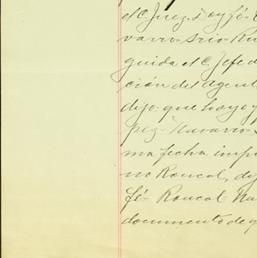 el C. Juez. Doy fé.
varro. Srio. Ru
guida el C. Jefe d
ción del agent
dijo: que hoy y
pez. Navarro.
ma fecha imp
no Roncal, di
fé. Roncal. Na
documento de q